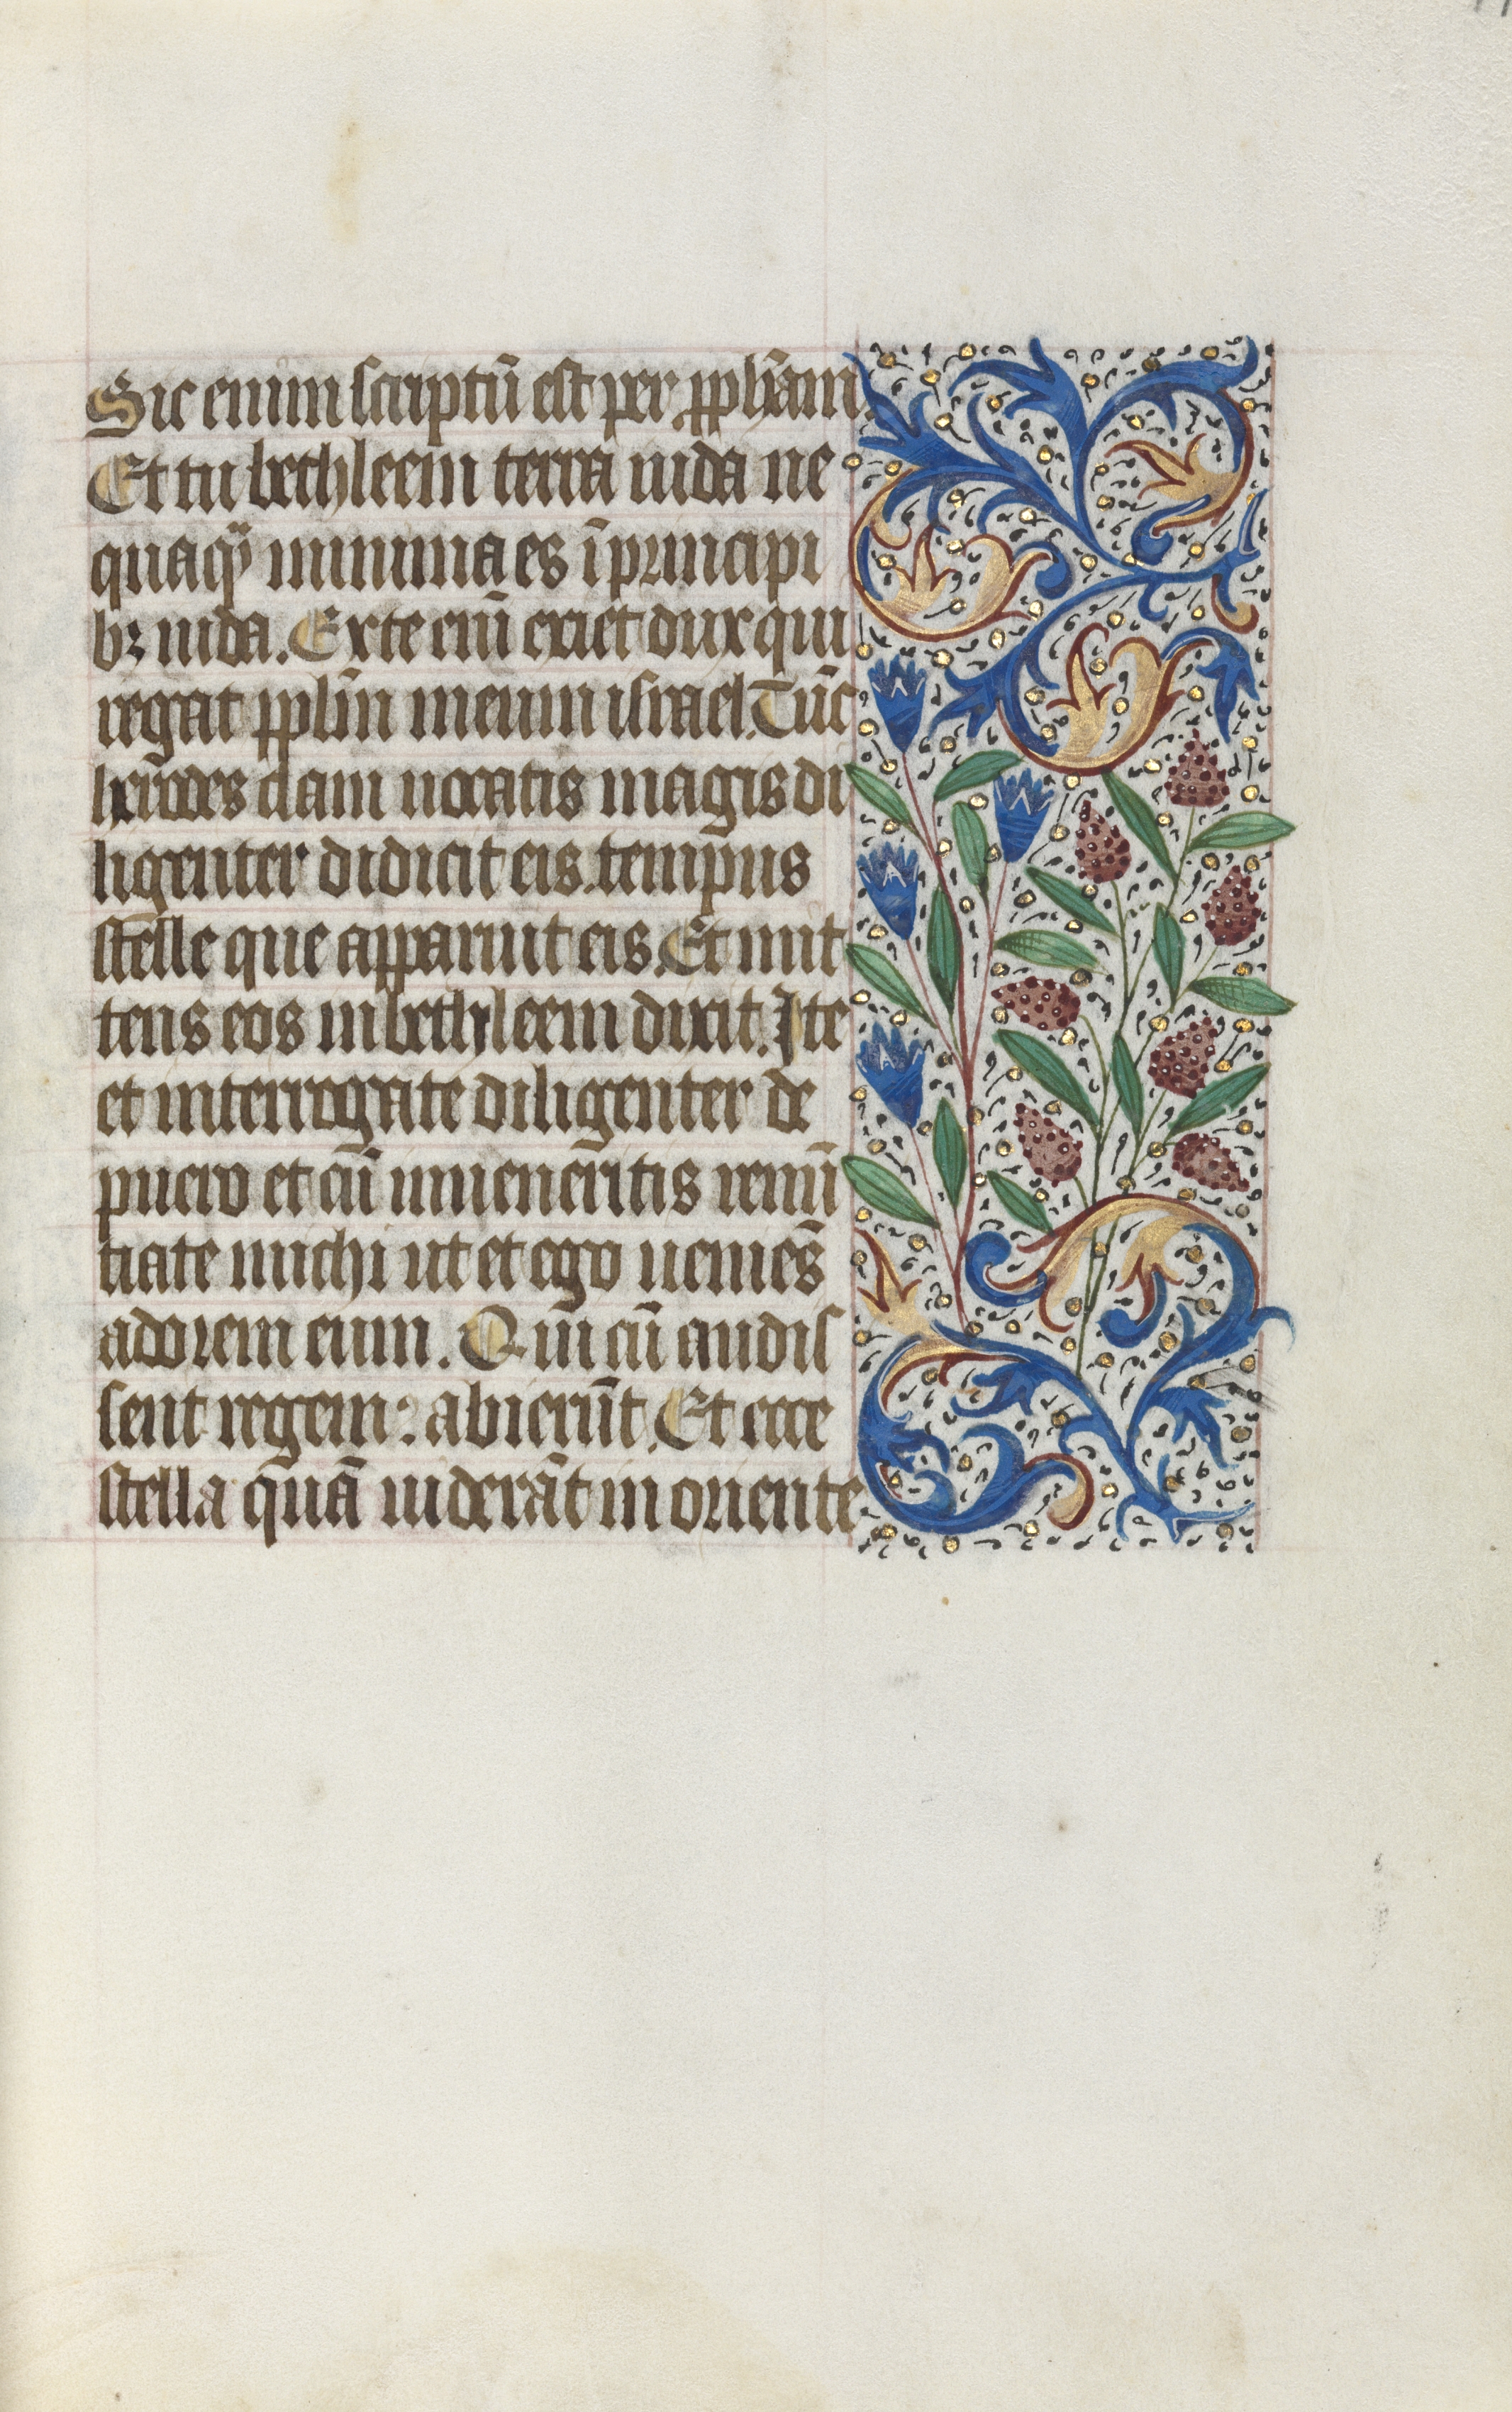 Sic enim scriptū est per pph̄am.
Et tu bethleem terra iuda ne
quaq̄ minima es ī principi
bꝫ iuda. Ex te enī exiet dux qui
regat pplm̄ meum israel. Tūc
herodes clam uocatis magis di
ligenter didicit eis. tempus
stelle que apparuit eis. Et mit
tens eos in bethleem dixit. Ite
et interrogate diligenter de
puero et cū inueneritis renū
tiate michi ut et ego ueniēs
adorem eum. Qui cū audis
sent regem: abierūt. Et ecce
stella quā uiderāt in oriente